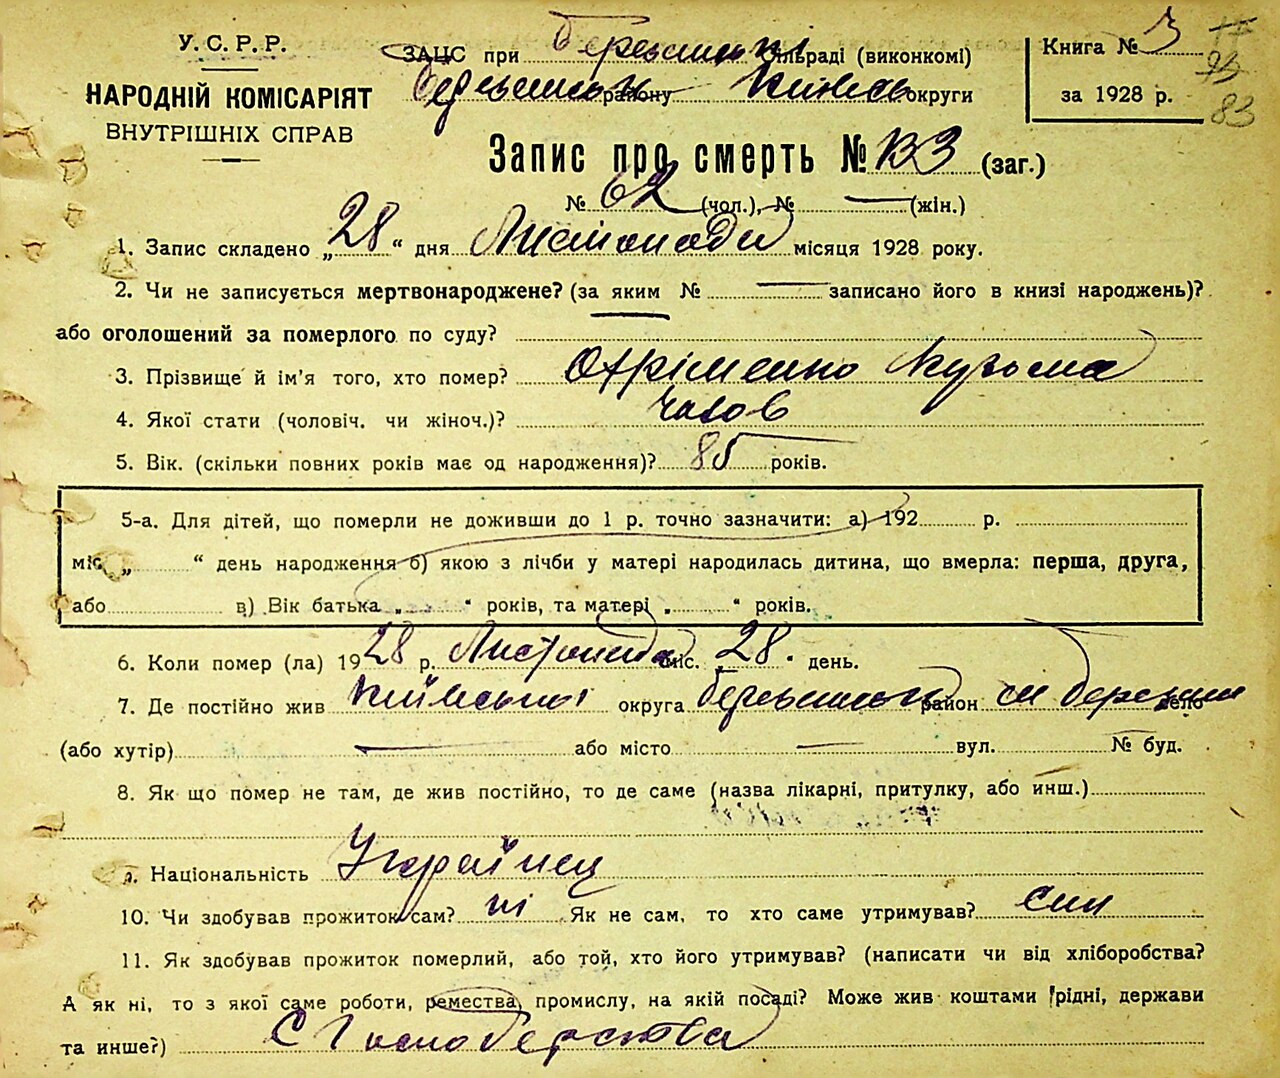 У. С. Р. Р.
НАРОДНІЙ КОМІСАРІЯТ
ВНУТРІШНІХ СПРАВ
ЗАЦС при сільраді (виконкомі)
району округи
Книга № 3
за 1928 р.
83
Запис про смерть № 133 (заг.)
№ 62 (чол.), № — (жін.)
1. Запис складено „28“ дня Листопада місяця 1928 року.
2. Чи не записується мертвонароджене? (за яким № — записано його в книзі народжень)?
або оголошений за померлого по суду?
3. Прізвище й ім'я того, хто помер? Охріменко Кузьма
4. Якої стати (чоловіч. чи жіноч.)? чолов
5. Вік. (скільки повних років має од народження)? 85 років.
5-а. Для дітей, що померли не доживши до 1 р. точно зазначити: а) 192 р.
міс. „ “ день народження б) якою з лічби у матері народилась дитина, що вмерла: перша, друга,
або в) Вік батька „ “ років, та матері „ “ років.
6. Коли помер (ла) 1928 р. Листопада міс. „28“ день.
7. Де постійно жив округа район село
(або хутір) — або місто — вул. № буд.
8. Як що помер не там, де жив постійно, то де саме (назва лікарні, притулку, або инш.)
9. Національність Українец
10. Чи здобував прожиток сам? ні Як не сам, то хто саме утримував? син
11. Як здобував прожиток померлий, або той, хто його утримував? (написати чи від хліборобства?
А як ні, то з якої саме роботи, ремества, промислу, на якій посаді? Може жив коштами рідні, держави
та инше?) С Господерства